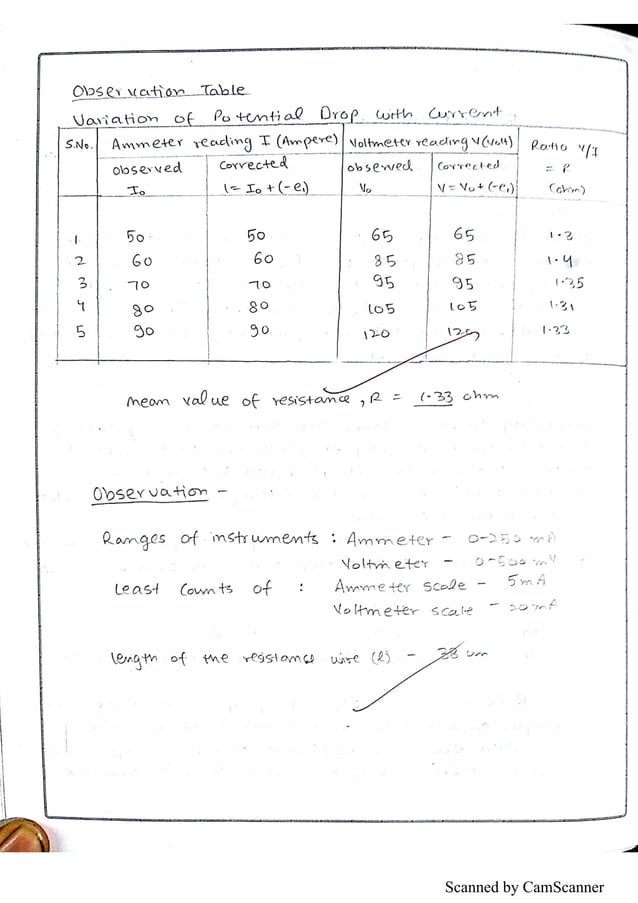 Observation Table
Variation of Potential Drop with Current.
S.No. Ammeter reading I (Ampere) Voltmeter reading V(Volt) Ratio V/I = R (ohm)
observed I₀ Corrected I = I₀ + (-e₁) observed V₀ Corrected V = V₀ + (-e₁)
1 50 50 65 65 1.3
2 60 60 85 85 1.4
3 70 70 95 95 1.35
4 80 80 105 105 1.31
5 90 90 120 120 1.33
mean value of resistance, R = 1.33 ohm
Observation -
Ranges of instruments : Ammeter - 0-250 mA
Voltmeter - 0-500 mV
Least Counts of : Ammeter scale - 5mA
Voltmeter scale - mA
length of the resistance wire (l) -
Scanned by CamScanner